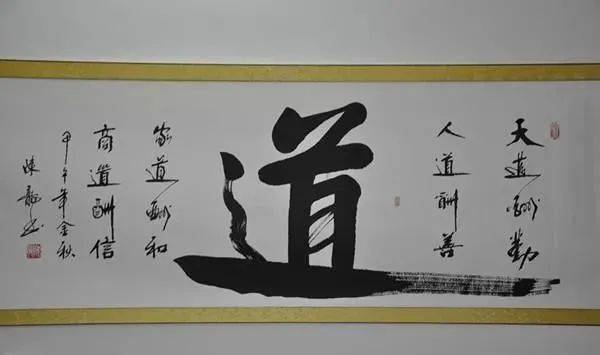 天道酬勤
人道酬善
道
家道酬和
商道酬信
甲午年金秋
陳龍書